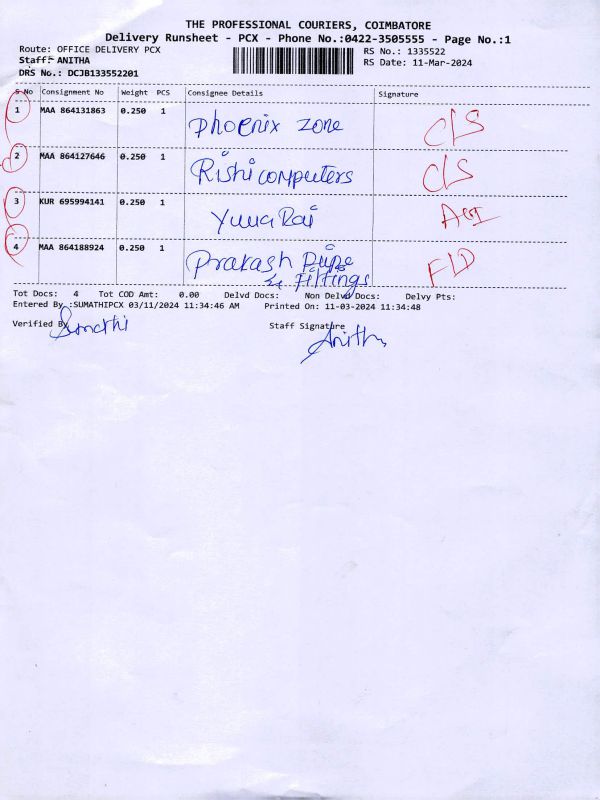 THE PROFESSIONAL COURIERS, COIMBATORE
Delivery Runsheet - PCX - Phone No.:0422-3505555 - Page No.:1
Route: OFFICE DELIVERY PCX RS No.: 1335522
Staff: ANITHA RS Date: 11-Mar-2024
DRS No.: DCJB133552201
S No Consignment No Weight PCS Consignee Details Signature
1 MAA 864131863 0.250 1 Phoenix zone C/S
2 MAA 864127646 0.250 1 Rishi computers C/S
3 KUR 695994141 0.250 1
4 MAA 864188924 0.250 1 Prakash Pipe
& Fittings
Tot Docs: 4 Tot COD Amt: 0.00 Delvd Docs: Non Delvd Docs: Delvy Pts:
Entered By :SUMATHIPCX 03/11/2024 11:34:46 AM Printed On: 11-03-2024 11:34:48
Verified By Sumathi Staff Signature
Anitha